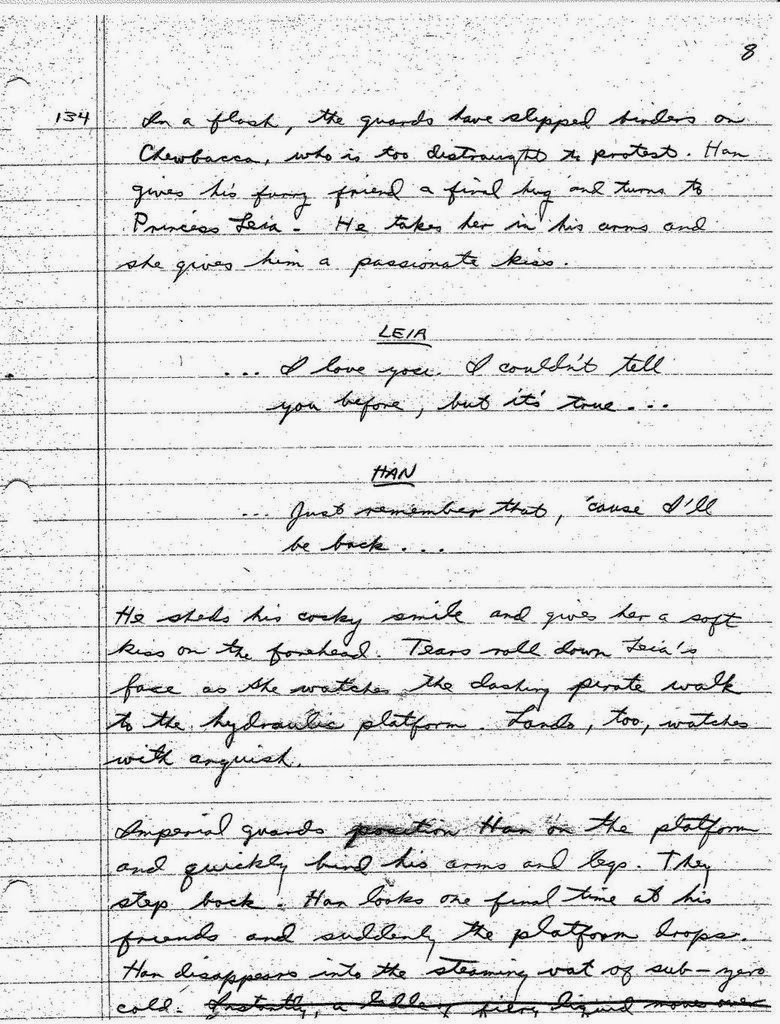 8
134 In a flash, the guards have slipped binders on
Chewbacca, who is too distraught to protest. Han
gives his furry friend a final hug and turns to
Princess Leia. He takes her in his arms and
she gives him a passionate kiss.
LEIA
... I love you. I couldn't tell
you before, but it's true ...
HAN
... Just remember that, 'cause I'll
be back ...
He sheds his cocky smile and gives her a soft
kiss on the forehead. Tears roll down Leia's
face as she watches the dashing pirate walk
to the hydraulic platform. Lando, too, watches
with anguish.
Imperial guards position Han on the platform
and quickly bind his arms and legs. They
step back. Han looks one final time at his
friends and suddenly the platform drops.
Han disappears into the steaming vat of sub-zero
cold. Instantly, a fiery liquid moves over